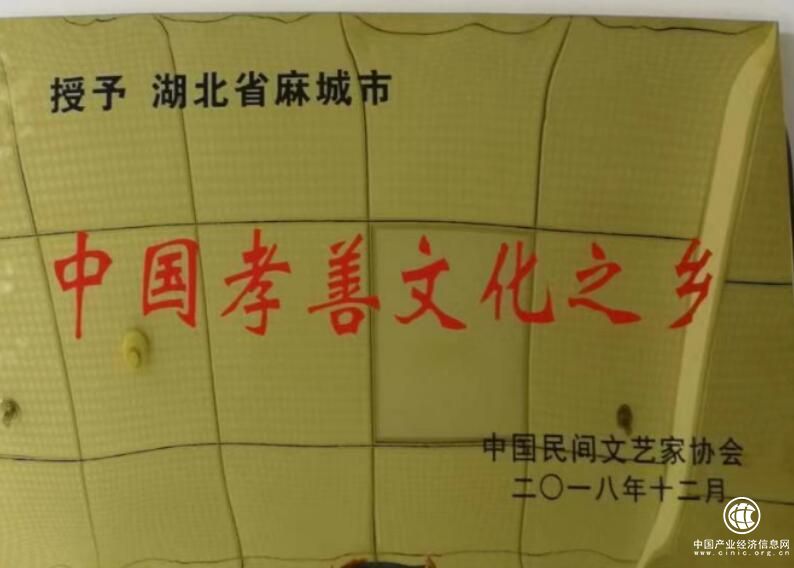 授予 湖北省麻城市
中国孝善文化之乡
中国民间文艺家协会
二〇一八年十二月
中国产业经济信息网
www.cinic.org.cn